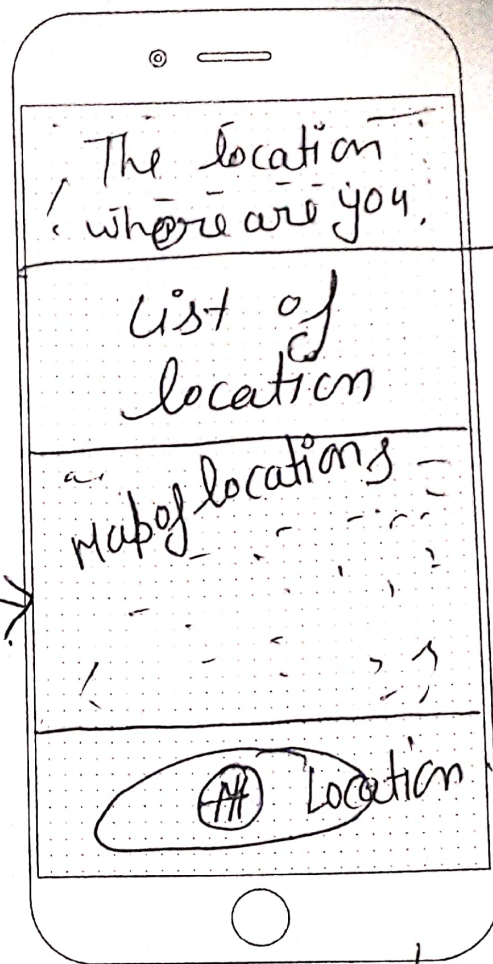 The location
where are you.
List of
location
Map of locations
Location